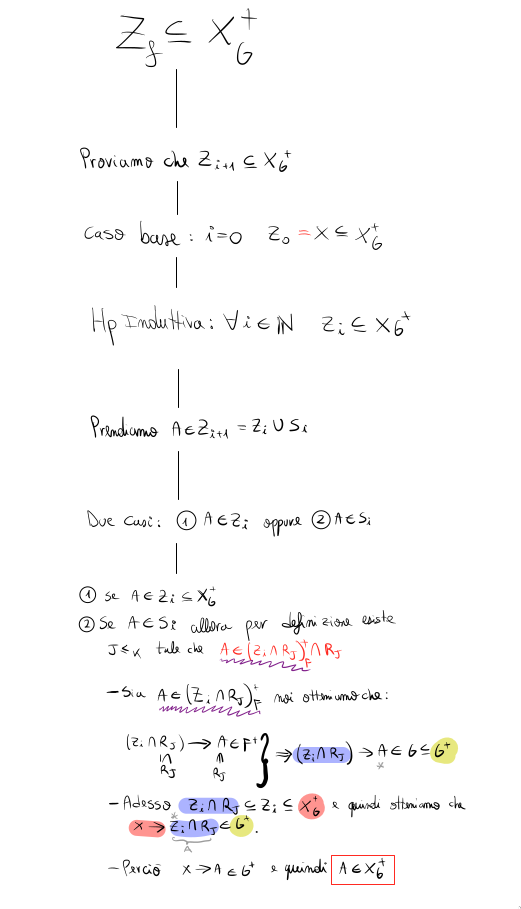 Z_f ⊆ X_G^+
Proviamo che Z_{i+1} ⊆ X_G^+
Caso base: i=0 Z_0 = X ⊆ X_G^+
Hp Induttiva: ∀i∈ℕ Z_i ⊆ X_G^+
Prendiamo A∈Z_{i+1} = Z_i ∪ S_i
Due casi: ① A∈Z_i oppure ② A∈S_i
① Se A∈Z_i ⊆ X_G^+
② Se A∈S_i allora per definizione esiste
J≤K tale che A∈(Z_i ∩ R_J)_F^+ ∩ R_J
- Sia A∈(Z_i ∩ R_J)_F^+ noi otteniamo che:
(Z_i ∩ R_J) → A∈F^+ } ⇒ (Z_i ∩ R_J) → A∈G ⊆ G^+
∩ ∩ *
R_J R_J
- Adesso Z_i ∩ R_J ⊆ Z_i ⊆ X_G^+ e quindi otteniamo che
*
X → Z_i ∩ R_J ∈ G^+.
A
- Perciò X→A∈G^+ e quindi A∈X_G^+